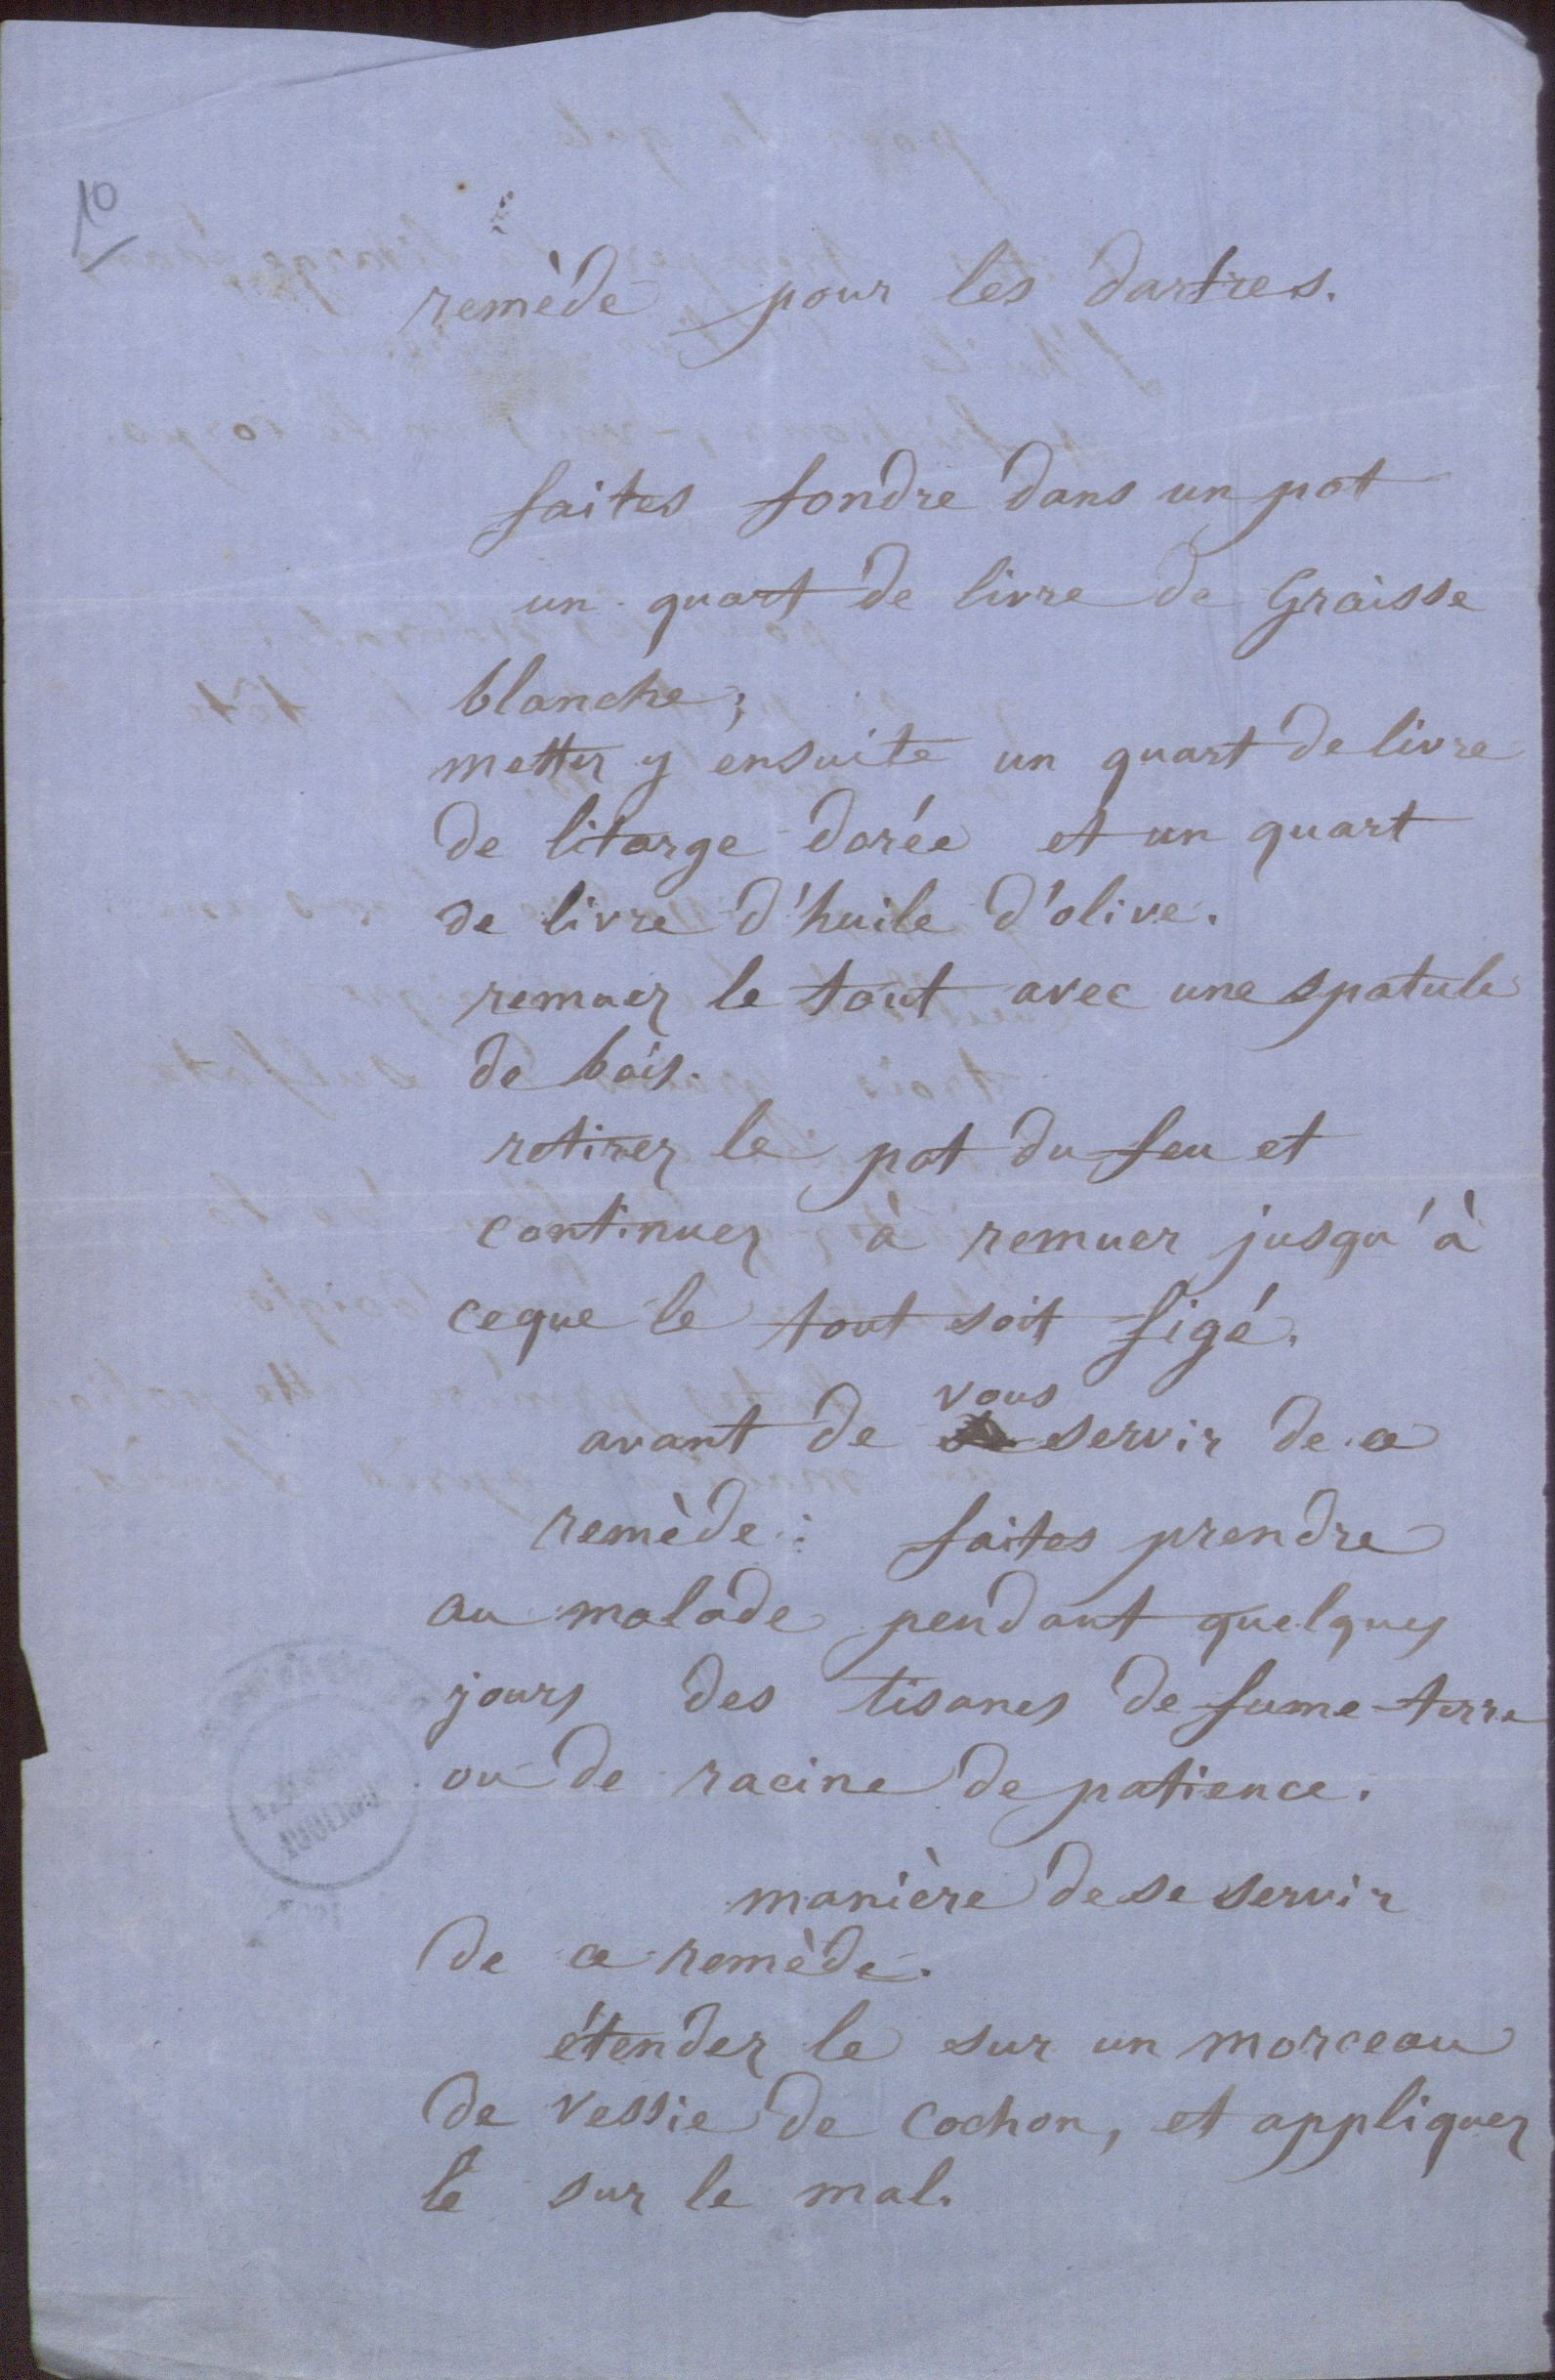 10
remède pour les dartres.
faites fondre dans un pot
un quart de livre de Graisse
blanche;
mettez y ensuite un quart de livre
de litarge dorée et un quart
de livre d'huile d'olive.
remuez le tout avec une spatule
de bois.
retirez le pot du feu et
continuez à remuer jusqu'à
ceque le tout soit figé.
vous
avant de servir de ce
remède : faites prendre
au malade pendant quelques
jours des tisanes de fume-terre
ou de racine de patience.
manière de se servir
de ce remède.
étendez le sur un morceau
de vessie de cochon, et appliquez
le sur le mal.